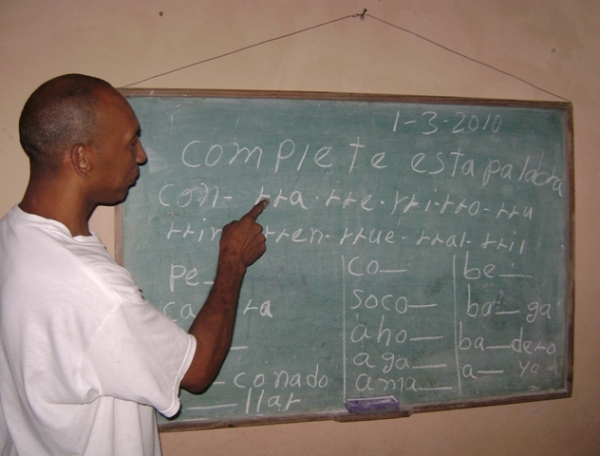 1-3-2010
complete esta palabra
con- rra. rre. rri. rro- rru
rrin rren. rrue. rral. rril
pe_
ca ra
_conado
__llar
co__
soco__
aho__
aga__
ama__
be__
ba__ga
ba__dero
a__yo